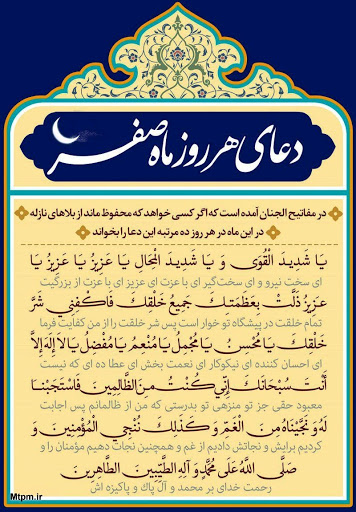 دعای هر روز ماه صفر
در مفاتیح الجنان آمده است که اگر کسی خواهد که محفوظ ماند از بلاهای نازله
در این ماه در هر روز ده مرتبه این دعا را بخواند
يَا شَدِيدَ الْقُوَى وَ يَا شَدِيدَ الْمِحَالِ يَا عَزِيزُ يَا عَزِيزُ يَا
ای سخت نیرو و ای سخت‌گیر ای با عزت ای عزیز ای با عزت از بزرگیت
عَزِيزُ ذَلَّتْ بِعَظَمَتِكَ جَمِيعُ خَلْقِكَ فَاكْفِنِي شَرَّ
تمام خلقت در پیشگاه تو خوار است پس شر خلقت را از من کفایت فرما
خَلْقِكَ يَا مُحْسِنُ يَا مُجْمِلُ يَا مُنْعِمُ يَا مُفْضِلُ يَا لاَ إِلَهَ إِلاَّ
ای احسان کننده ای نیکوکار ای نعمت بخش ای عطا ده ای که نیست
أَنْتَ سُبْحَانَكَ إِنِّي كُنْتُ مِنَ الظَّالِمِينَ فَاسْتَجَبْنَا
معبود حقی جز تو منزهی تو بدرستی که من از ظالمانم پس اجابت
لَهُ وَ نَجَّيْنَاهُ مِنَ الْغَمِّ وَ كَذَلِكَ نُنْجِي الْمُؤْمِنِينَ وَ
کردیم برایش و نجاتش دادیم از غم و همچنین نجات دهیم مؤمنان را و
صَلَّى اللَّهُ عَلَى مُحَمَّدٍ وَ آلِهِ الطَّيِّبِينَ الطَّاهِرِينَ
رحمت خدای بر محمد و آل پاک و پاکیزه اش
Mtpm.ir